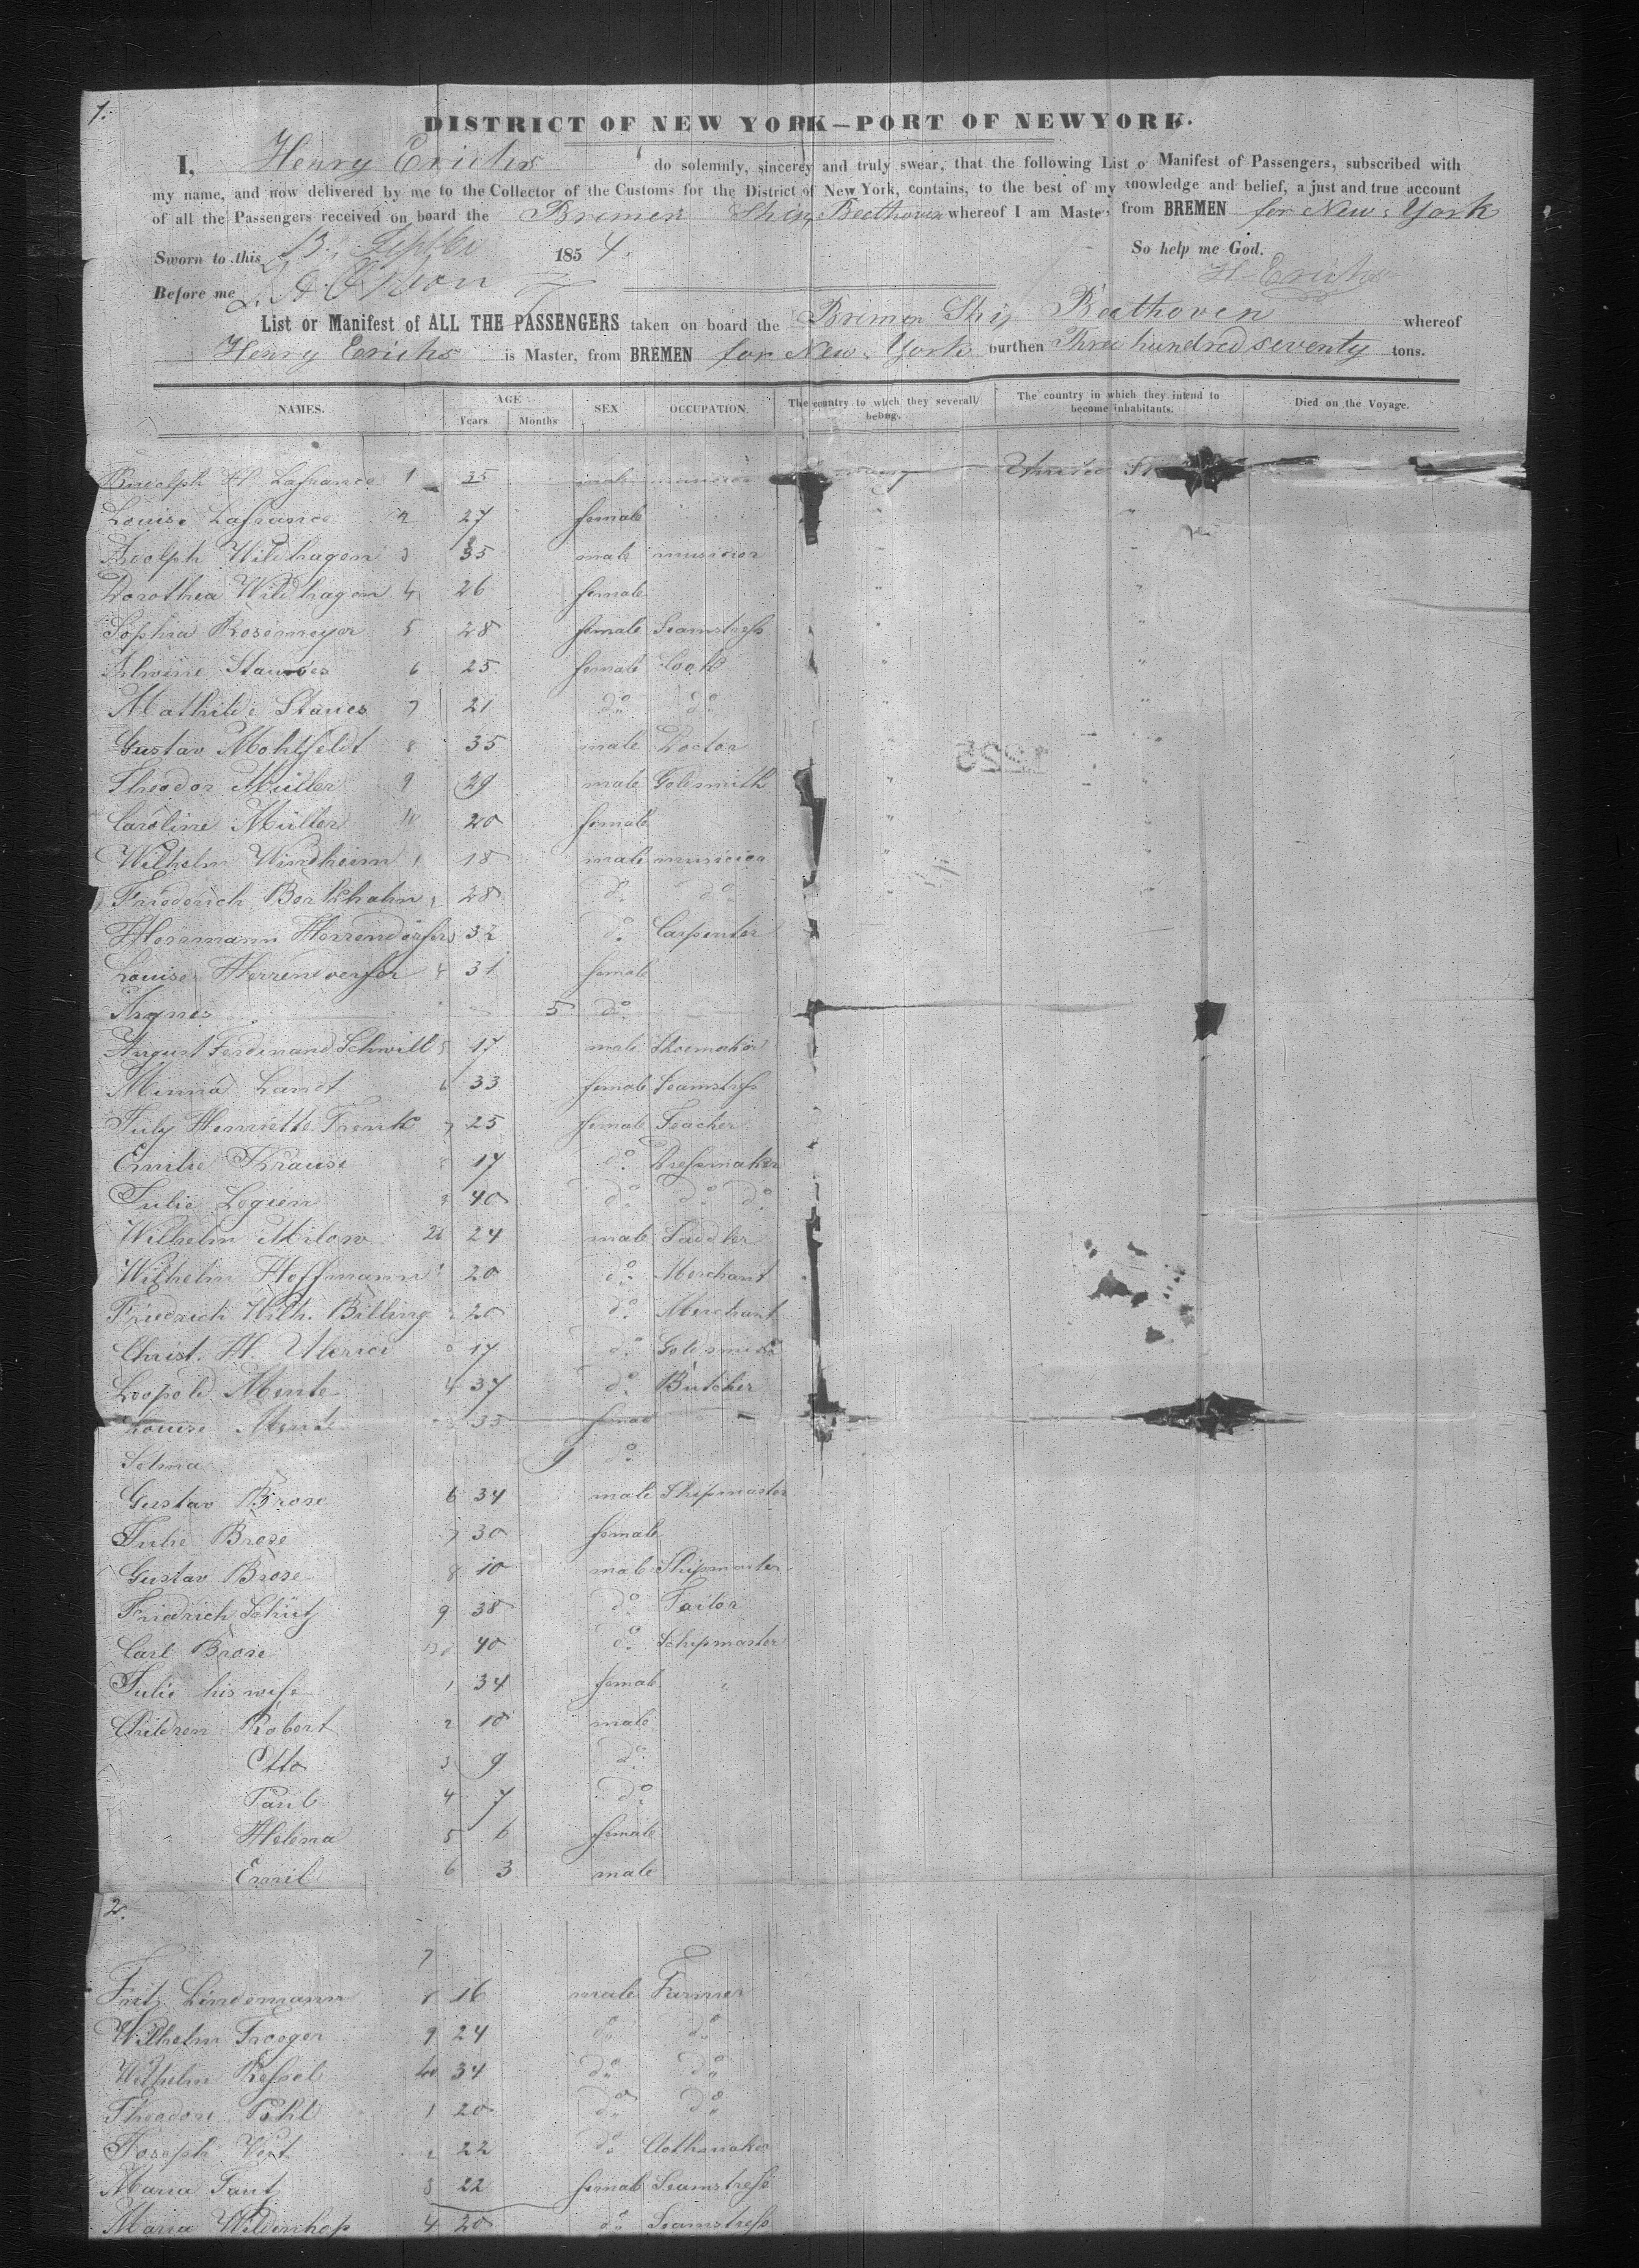 1.
DISTRICT OF NEW YORK—PORT OF NEWYORK.
I, Henry Erichs do solemnly, sincerey and truly swear, that the following List o Manifest of Passengers, subscribed with
my name, and now delivered by me to the Collector of the Customs for the District of New York, contains, to the best of my knowledge and belief, a just and true account
of all the Passengers received on board the Bremen Ship Beethoven whereof I am Master, from BREMEN for New-York
Sworn to this 13 Septbr 1854. So help me God.
Before me H. Erichs
List or Manifest of ALL THE PASSENGERS taken on board the Bremen Ship Beethoven whereof
Henry Erichs is Master, from BREMEN for New-York burthen Three hundred seventy tons.
NAMES. AGE Years Months SEX OCCUPATION. The country to which they severall belong. The country in which they intend to become inhabitants. Died on the Voyage.
Rudolph H. Lafrance 1 35 male musician United St
Louise Lafrance 2 27 female
Adolph Wildhagen 3 35 male musician
Dorothea Wildhagen 4 26 female
Sophia Rosemeyer 5 28 female Seamstress
Alwine Stauves 6 25 female Cook
Mathilde Stauves 7 21 do do
Gustav Mohlfeldt 8 35 male Doctor
1225
Theodor Müller 9 29 male Goldsmith
Caroline Müller 10 20 female
Wilhelm Windheim 1 18 male musician
Friederich Borkhahn 2 28 do do
Herrmann Herrendörfer 3 32 do Carpenter
Louise Herrendoerfer 4 31 female
Agnes 5 do
August Ferdinand Schwill 5 17 male Shoemaker
Minna Landt 6 33 female Seamstress
July Henriette Frenk 7 25 female Teacher
Emilie Krause 8 17 do Dressmaker
Julie Legien 9 40 do do do
Wilhelm Milow 20 24 male Saddler
Wilhelm Hoffmann 1 20 do Merchant
Friedrich Wilh. Billing 2 20 do Merchant
Christ. H. Ulerici 17 do Goldsmith
Leopold Mente 4 37 do Butcher
Louise Mente 33 female
Selma 9 do
Gustav Brose 6 34 male Shipmaster
Julie Brose 7 30 female
Gustav Brose 8 10 male Shipmaster
Friedrich Schütz 9 38 do Tailor
Carl Brose 30 40 do Schipmaster
Julie his wife 1 34 female
Children Robert 2 10 male
Otto 3 9 do
Paul 4 7 do
Helena 5 6 female
Emil 6 3 male
2.
7
Fritz Lindemann 8 16 male Farmer
Wilhelm Troeger 9 24 do do
Wilhelm Ressel 40 34 do do
Theodore Pohl 1 20 do do
Joseph Veit 2 22 do Clothmaker
Maria Tautz 3 22 female Seamstress
Maria Wildenhop 4 20 do Seamstress